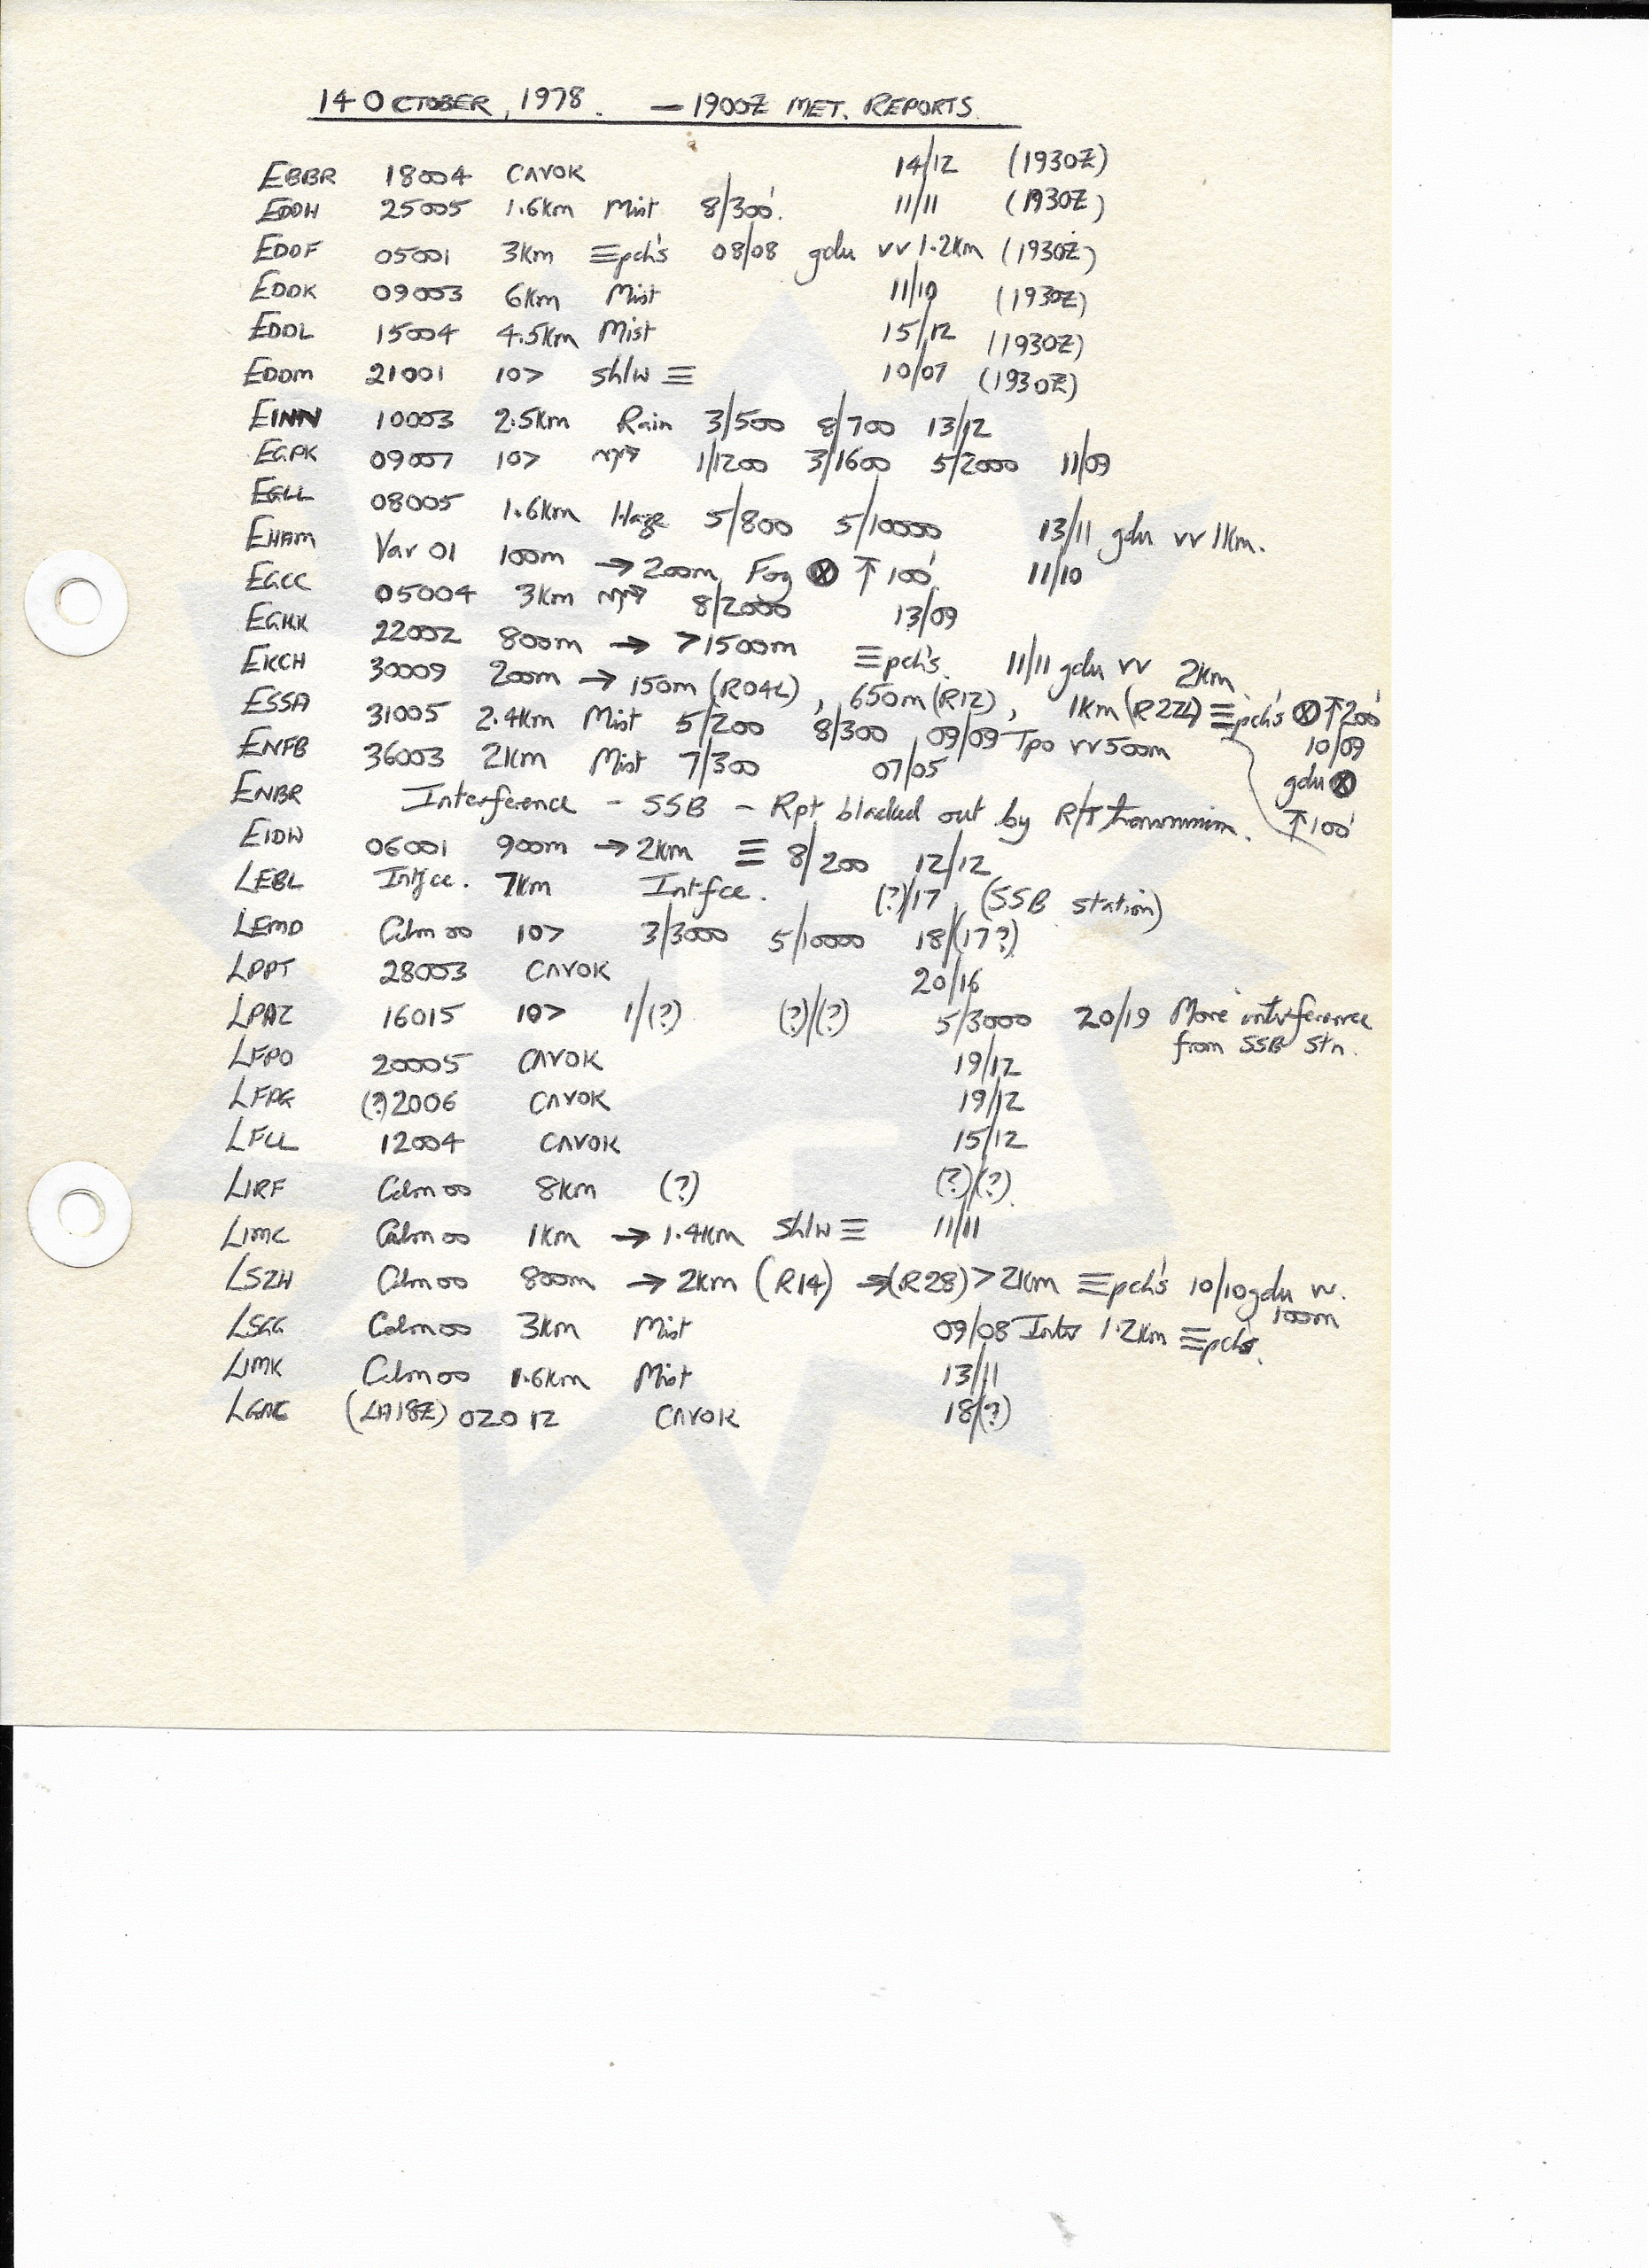 14 OCTOBER, 1978. — 1900Z MET. REPORTS
EBBR 18004 CAVOK 14/12 (1930Z)
EDDH 25005 1.6km Mist 8/300'. 11/11 (1930Z)
EDDF 05001 3km ≡pch's 08/08 gdu vv 1.2km (1930Z)
EDDK 09003 6km Mist 11/10 (1930Z)
EDDL 15004 4.5km Mist 15/12 (1930Z)
EDDM 21001 10> Sh/w ≡ 10/07 (1930Z)
EINN 10003 2.5km Rain 3/500 8/700 13/12
EGPK 09007 10> 1/1200 3/1600 5/2000 11/09
EGLL 08005 1.6km Haze 5/800 5/10000 13/11 gdu vv 1km.
EHAM Var 01 100m → 200m Fog ⊗ ↑ 100' 11/10
EGCC 05004 3km 8/2000 13/09
EGKK 22002 800m → >1500m ≡pch's. 11/11 gdu vv 2km
EKCH 30009 200m → 150m (R04L), 650m (R12), 1km (R22L) ≡pch's ⊗↑200' 10/09 gdu ⊗ ↑100'
ESSA 31005 2.4km Mist 5/200 8/300 09/09 Tpo vv 500m
ENFB 36003 2km Mist 7/300 07/05
ENBR Interference - SSB - Rpt blacked out by R/T transmission.
EIDW 06001 900m → 2km ≡ 8/200 12/12
LEBL Intfce. 7km Intfce. (?)/17 (SSB station)
LEMD Calm 00 10> 3/3000 5/10000 18/(17?)
LPPT 28003 CAVOK 20/16
LPAZ 16015 10> 1/(?) (?)/(?) 5/3000 20/19 More interference
from SSB Stn.
LFPO 20005 CAVOK 19/12
LFPG (?)2006 CAVOK 19/12
LFLL 12004 CAVOK 15/12
LIRF Calm 00 8km (?) (?)/(?)
LIMC Calm 00 1km → 1.4km Sh/w ≡ 11/11
LSZH Calm 00 800m → 2km (R14) → (R28) > 2km ≡pch's 10/10 gdu vv. 100m
LSGG Calm 00 3km Mist 09/08 Inter 1.2km ≡pchs.
LIMK Calm 00 1.6km Mist 13/11
(LA18Z) 02012 CAVOK 18/(?)